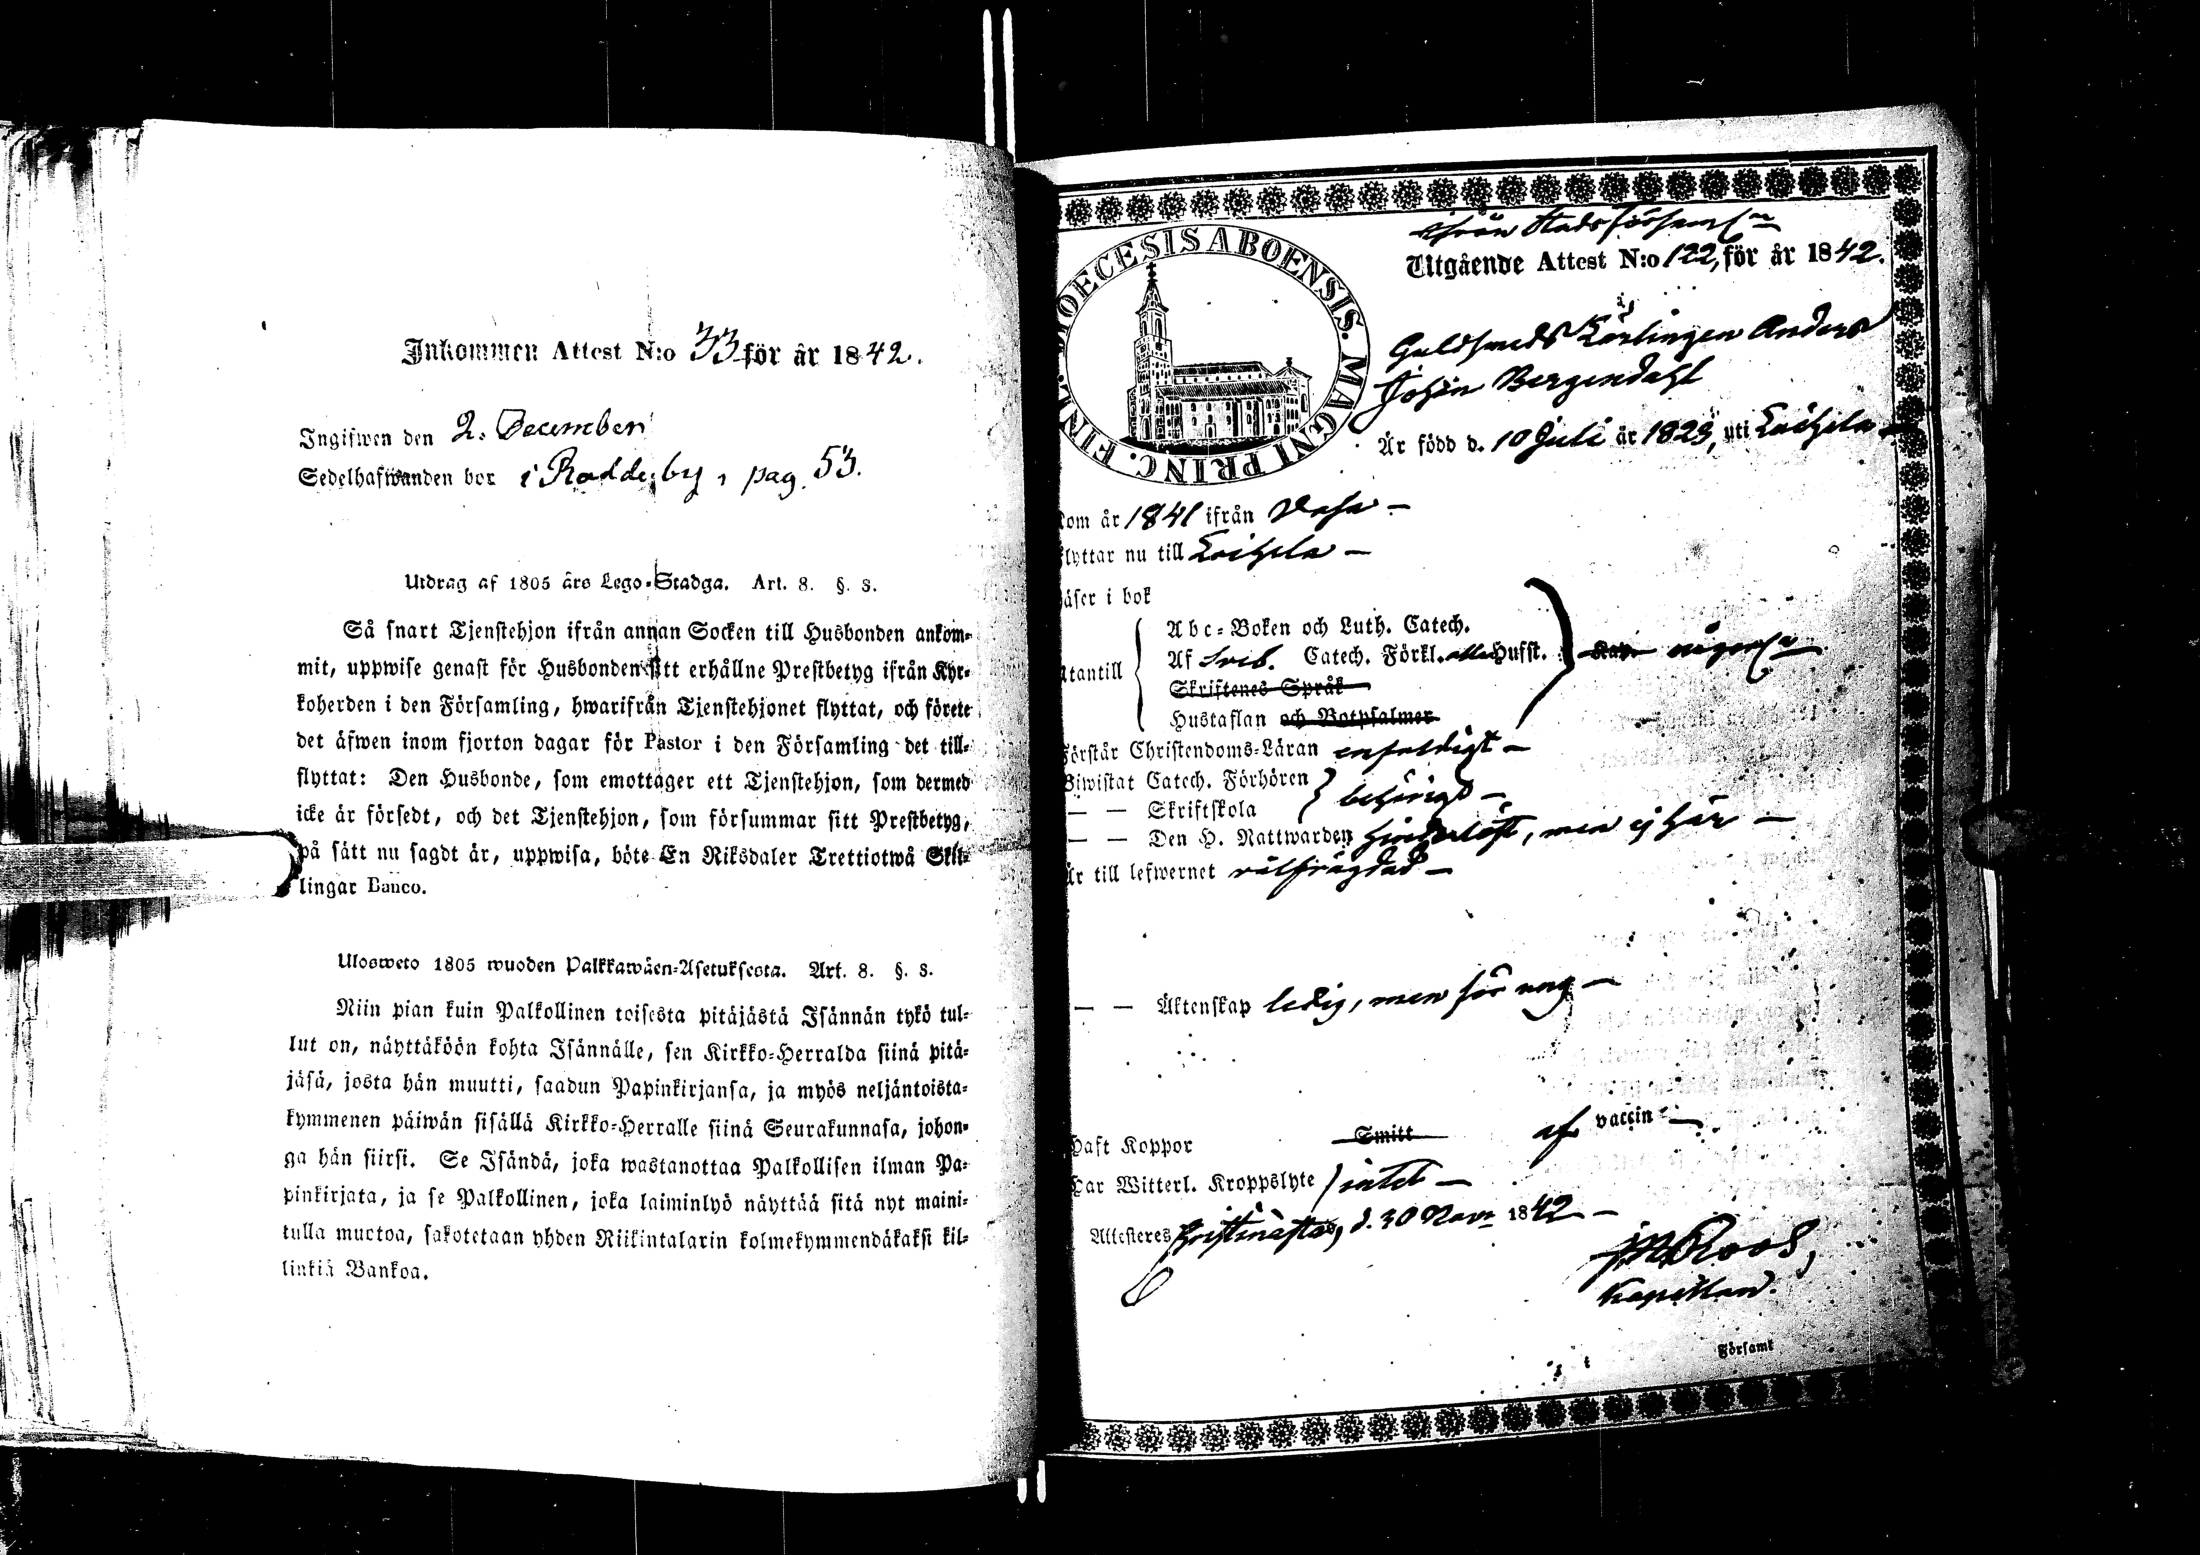 Inkommen Attest N:o 33 för år 1842.
Ingifwen den 2. December
Sedelhafwanden bor i Roddsby, pag. 53.
Utdrag af 1805 års Lego-Stadga. Art. 8. §. 8.
Så snart Tjenstehjon ifrån annan Socken till Husbonden ankom-
mit, uppwise genast för Husbonden sitt erhållne Prestbetyg ifrån Kyr-
koherden i den Församling, hwarifrån Tjenstehjonet flyttat, och förete
det äfwen inom fjorton dagar för Pastor i den Församling det till-
flyttat: Den Husbonde, som emottager ett Tjenstehjon, som dermed
icke är försedt, och det Tjenstehjon, som försummar sitt Prestbetyg,
på sätt nu sagdt är, uppwisa, böte En Riksdaler Trettiotwå Skil-
lingar Banco.
Ulosweto 1805 wuoden Palkkawäen-Asetuksesta. Art. 8. §. 8.
Niin pian kuin Palkollinen toisesta pitäjästä Isännän tykö tul-
lut on, näyttäköön kohta Isännälle, sen Kirkko-Herralda siinä pitä-
jäsä, josta hän muutti, saadun Papinkirjansa, ja myös neljäntoista-
kymmenen päiwän sisällä Kirkko-Herralle siinä Seurakunnasa, johon-
ga hän siirsi. Se Isändä, joka wastanottaa Palkollisen ilman Pa-
pinkirjata, ja se Palkollinen, joka laiminlyö näyttää sitä nyt maini-
tulla muotoa, sakotetaan yhden Riikintalarin kolmekymmendäkaksi kil-
linkiä Bankoa.
DIOECESIS ABOENSIS. MAGNI PRINC. FINL.
ifrån Stads Församl:n
Utgående Attest N:o 122, för år 1842.
Guldsmeds Lärlingen Anders
Johan Bergendahl
Är född d. 10 Juli år 1823, uti Laihela
kom år 1841 ifrån Vasa –
flyttar nu till Laihela –
läser i bok
Abc-Boken och Luth. Catech.
Utantill Af Sveb. Catech. Förkl. Husst. någorl.
Skriftenes Språk
Hustaflan och Botpsalmer
Förstår Christendoms-Läran enfaldigt –
Biwistat Catech. Förhören
— — Skriftskola behörigt –
— — Den H. Nattwarden hinderlöst, men ej här –
Är till lefwernet välfrägdad –
— — Äktenskap ledig, men för ung –
Haft Koppor Smitt af vaccin –
Har Witterl. Kroppslyte intet –
Attesteres Christinæstad, d. 30 Nov. 1842 –
JM Roos,
Kapellan.
Församl